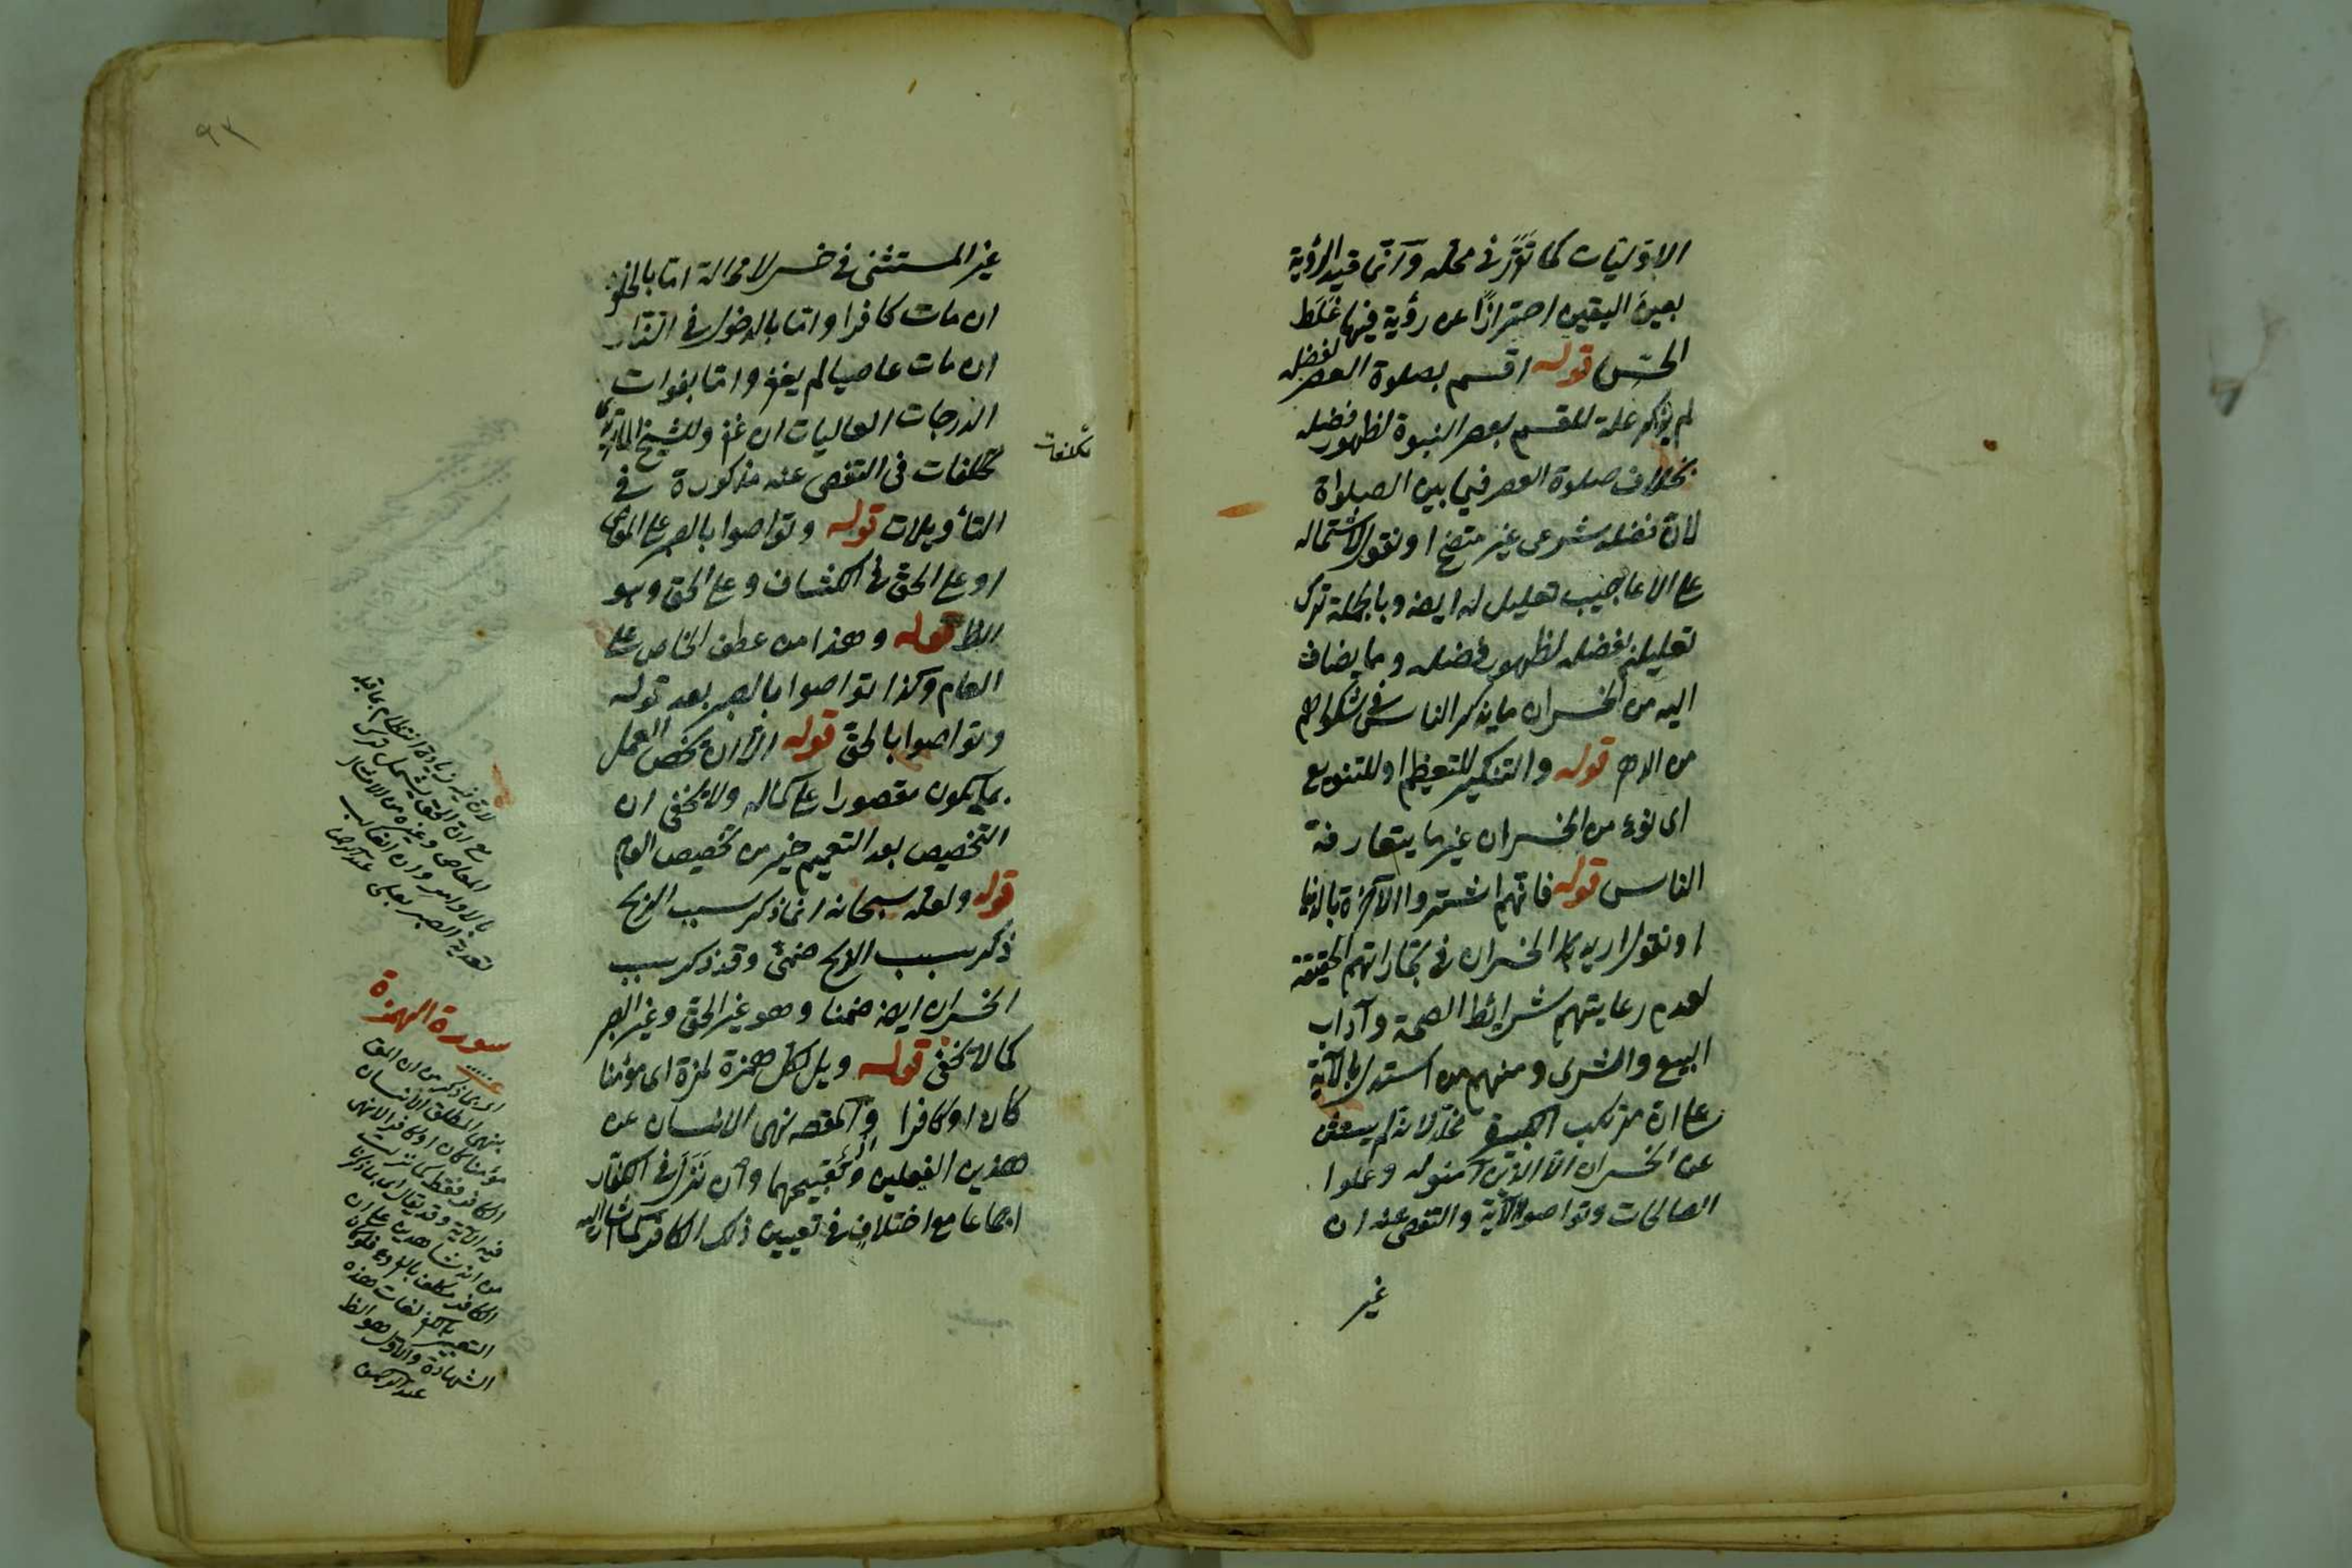 الاوّليّات كما تقرّر فى محلّه وانّما قيد الرؤية
بعين اليقين احترازًا عن رؤية فيها غَلَط
الحسّ قوله اقسم بصلوة العصر لفضله
لم يذكر علة للقسم بعصر النبوة لظهور فضله
بخلاف صلوة العصر فيما بين الصلواة
لانّ فضله شرعى غير متضح او نقول لاشتماله
على الاعاجيب تعليل له ايضا وبالجملة ترك
تعليله بفضله لظهور فضله وما يضاف
اليه من الخسران ما يذكر الناس فى شكواهم
من الدهر قوله والتنكير للتعظيم او للتنويع
اى نوع من الخسران غير ما يتعارفه
الناس قوله فانّهم اشتروا الآخرة بالدنيا
او نقول اريد الخسران فى تجاراتهم الحقيقة
لعدم رعايتهم شرائط الصحة وآداب
البيع والشرى ومنهم من استدل بالآية
على انّ مرتكب الكبيرة مخلّد لانه لم يستثن
عن الخسران الّا الذين آمنوا وعملوا
الصالحات وتواصوا الآية والتفصى عنه ان
غير
٩٢
غير المستثنى فى خسر لا محالة امّا بالخلود
ان مات كافرا وامّا بالدخول فى النار
ان مات عاصيا لم يغفر وامّا بفوات
الدرجات العاليات ان غفر وللشيخ الماتريدى
تكلفات فى التفصى عنه مذكورة فى
تكلفات
التأويلات قوله وتواصوا بالصبر عن المعاصى
او على الحق فى الكشاف وعلى الحق وهو
الظ قوله وهذا من عطف الخاص على
العام وكذا تواصوا بالصبر بعد قوله
وتواصوا بالحق قوله الا ان يخص العمل
بما يكون مقصورا على كماله ولا يخفى ان
التخصيص بعد التعميم خير من تخصيص العام
قوله ولعله سبحانه انما ذكر سبب الربح
ذكر سبب الربح ضمنى وقد ذكر سبب
الخسران ايضا ضمنا وهو غير الحق وغير الصبر
كما لا يخفى قوله ويل لكل همزة لمزة اى مؤمنا
كان او كافرا والمقصد نهى الانسان عن
هذين الفعلين وتقبيحهما وان نزل فى الكفار
اجماعا مع اختلاف فى تعيين ذلك الكافر كما اشار اليه
لانّ فيه زيادة انتظام بما قبله
مع انّ الحق يشمل ترك
المعاصى وغيره من الامتثال
بالاوامر وان الغالب
تعدية الصبر بعلى عبد الرحمن
سورة الهمزة
اى بما ذكر من ان المق
بنهى المطلق الانسان
مؤمنا كان او كافرا لا نهى
الكافر فقط كما نزلت
فيه الآية وقد يقال اى بما ذكرنا
من انه شاهد على ان
الكافر مكلف بالفروع فلو كان
الشهادة والاوّل هو الظ
عبد الرحمن